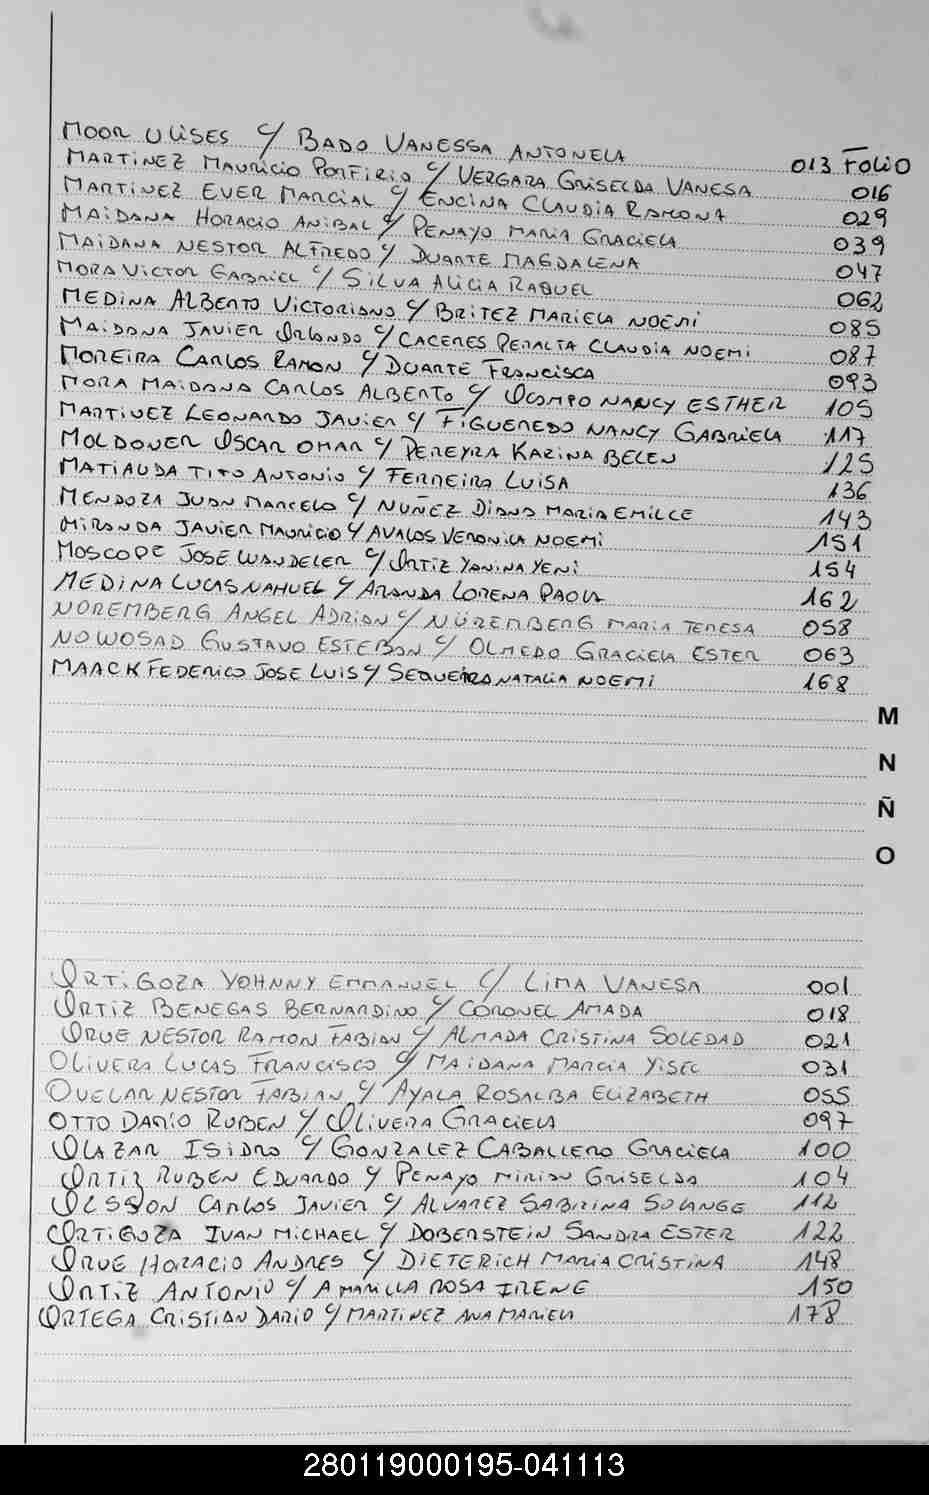 MOOR ULISES C/ BADO VANESSA ANTONELA 013 FOLIO
MARTINEZ MAURICIO PORFIRIO C/ VERGARA GRISELDA VANESA 016
MARTINEZ EVER MARCIAL C/ ENCINA CLAUDIA RAMONA 029
MAIDANA HORACIO ANIBAL C/ PENAYO MARIA GRACIELA 039
MAIDANA NESTOR ALFREDO C/ DUARTE MAGDALENA 047
MORA VICTOR GABRIEL C/ SILVA ALICIA RAQUEL 062
MEDINA ALBERTO VICTORIANO C/ BRITEZ MARIELA NOEMI 085
MAIDANA JAVIER ORLANDO C/ CACERES PERALTA CLAUDIA NOEMI 087
MOREIRA CARLOS RAMON C/ DUARTE FRANCISCA 093
MORA MAIDANA CARLOS ALBERTO C/ OCAMPO NANCY ESTHER 105
MARTINEZ LEONARDO JAVIER C/ FIGUEREDO NANCY GABRIELA 117
MOLDONER OSCAR OMAR C/ PEREYRA KARINA BELEN 125
MATIAUDA TITO ANTONIO C/ FERREIRA LUISA 136
MENDOZA JUAN MARCELO C/ NUÑEZ DIANA MARIA EMILCE 143
MIRANDA JAVIER MAURICIO C/ AVALOS VERONICA NOEMI 151
MOSCOPE JOSE WANDELER C/ ORTIZ YANINA YENI 154
MEDINA LUCAS NAHUEL C/ ARANDA LORENA PAOLA 162
NOREMBERG ANGEL ADRIAN C/ NÜREMBERG MARIA TERESA 058
NOWOSAD GUSTAVO ESTEBAN C/ OLMEDO GRACIELA ESTER 063
MAACK FEDERICO JOSE LUIS C/ SEQUEIRA NATALIA NOEMI 168
M
N
Ñ
O
ORTIGOZA YOHNNY EMMANUEL C/ LIMA VANESA 001
ORTIZ BENEGAS BERNARDINO C/ CORONEL AMADA 018
ORUE NESTOR RAMON FABIAN C/ ALMADA CRISTINA SOLEDAD 021
OLIVERA LUCAS FRANCISCO C/ MAIDANA MARCIA YISEL 031
OVELAR NESTOR FABIAN C/ AYALA ROSALBA ELIZABETH 055
OTTO DARIO RUBEN C/ OLIVERA GRACIELA 097
OLAZAR ISIDRO C/ GONZALEZ CABALLERO GRACIELA 100
ORTIZ RUBEN EDUARDO C/ PENAYO MIRIAN GRISELDA 104
OLSSON CARLOS JAVIER C/ ALVAREZ SABRINA SOLANGE 112
ORTIGOZA IVAN MICHAEL C/ DOBERSTEIN SANDRA ESTER 122
ORUE HORACIO ANDRES C/ DIETERICH MARIA CRISTINA 148
ORTIZ ANTONIO C/ AMARILLA ROSA IRENE 150
ORTEGA CRISTIAN DARIO C/ MARTINEZ ANA MARIELA 178
280119000195-041113